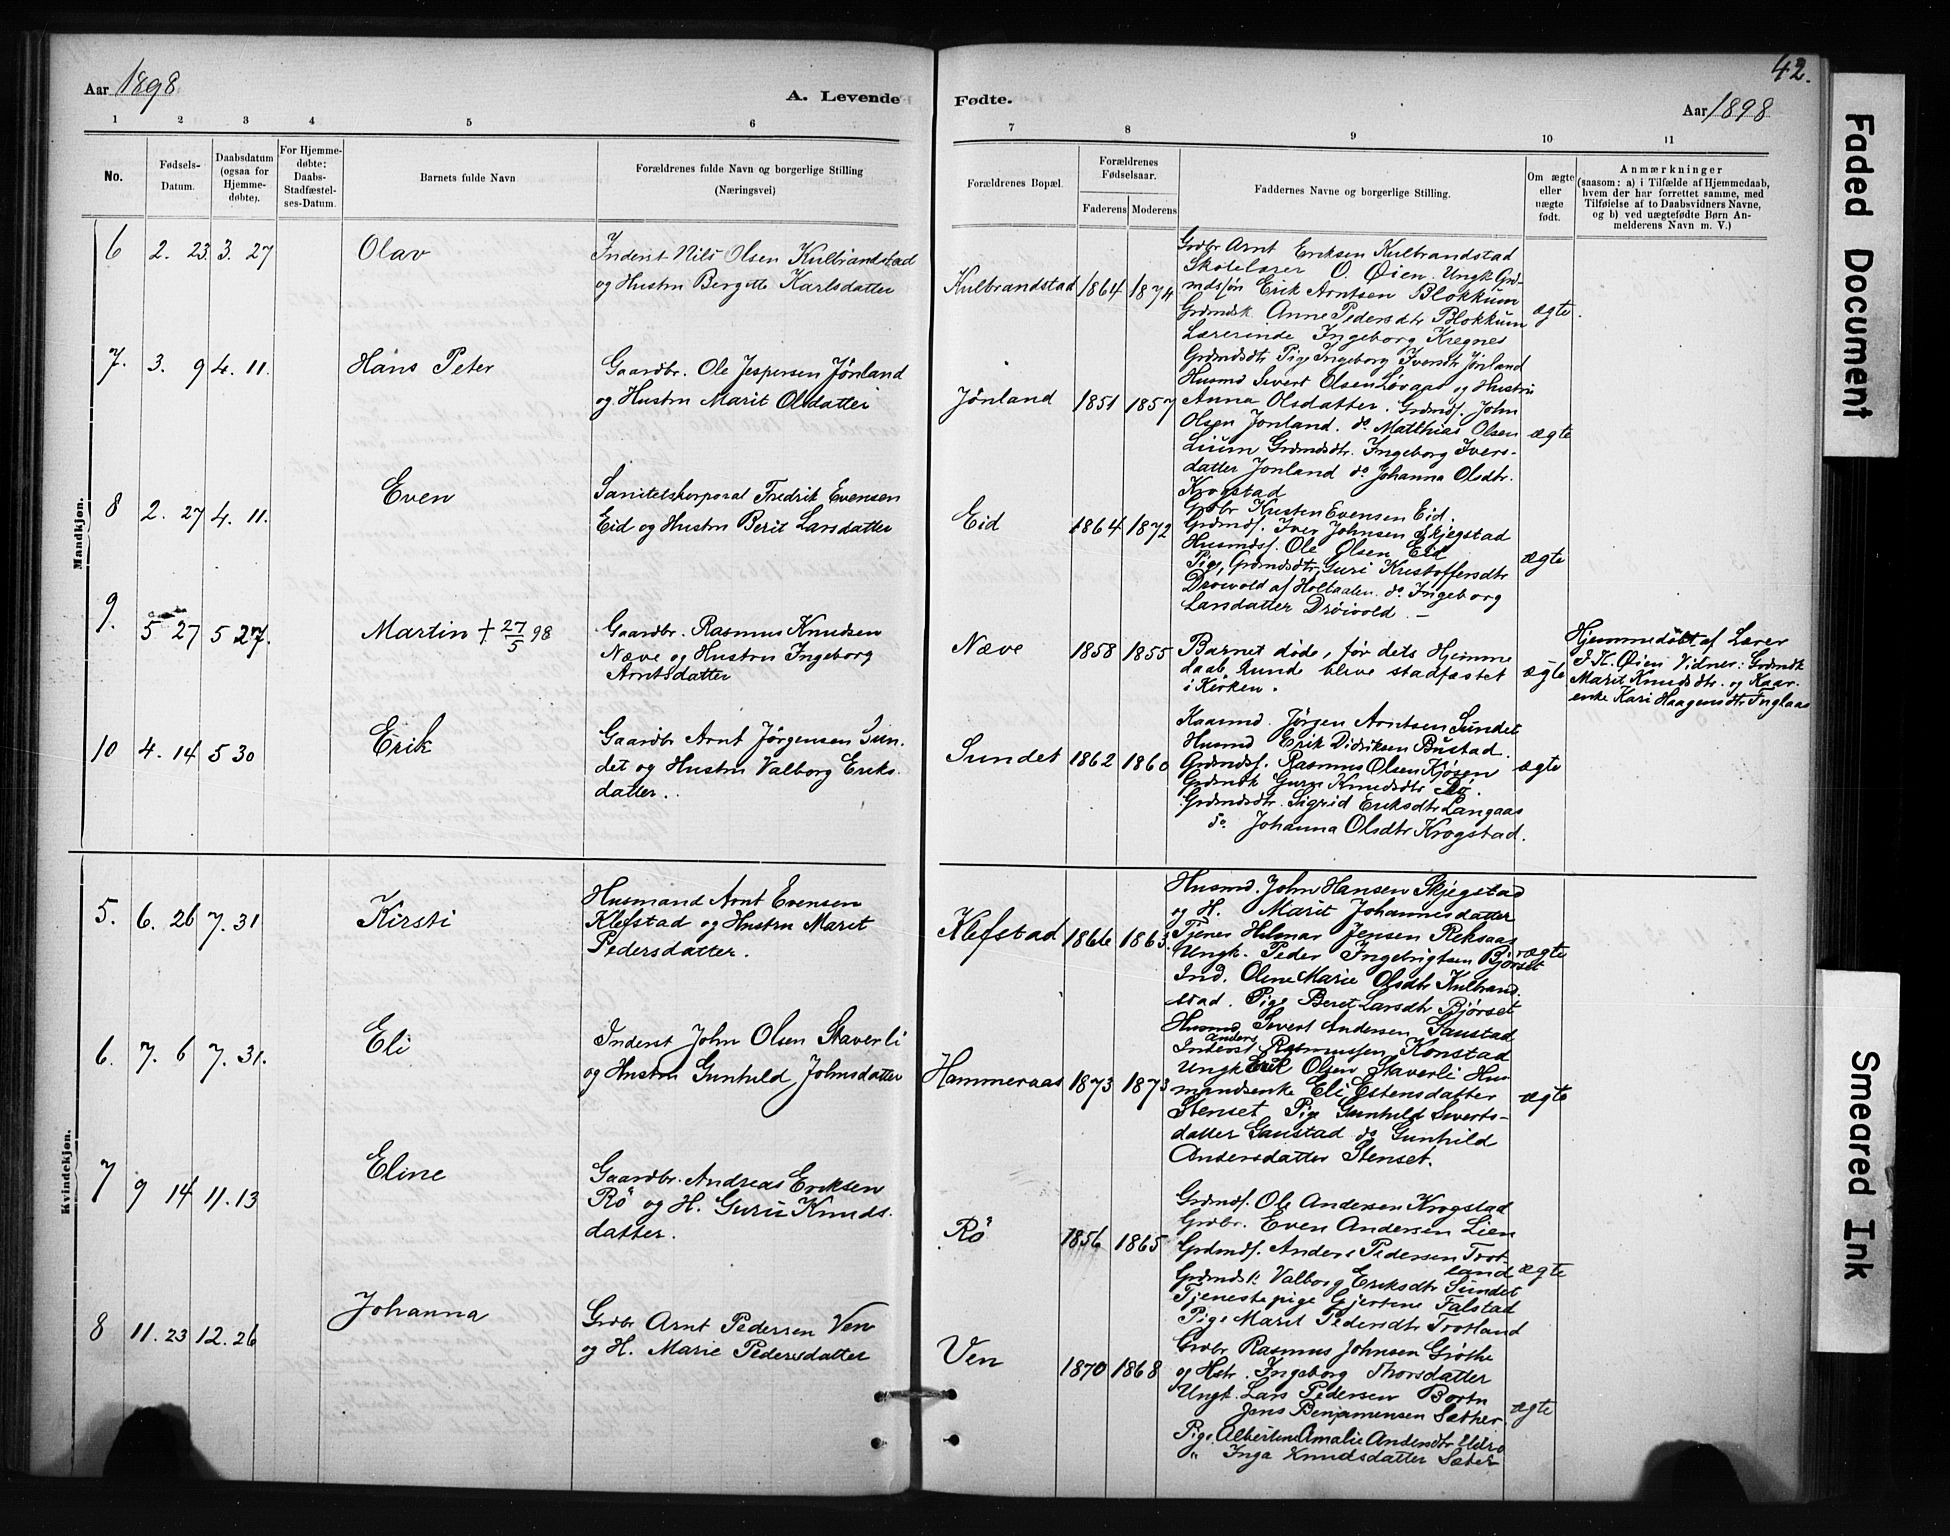 42.
Aar 1898
A. Levende
Fødte.
Aar 1898
1 2 3 4 5 6
7 8 9 10 11
No.
Fødsels-
Datum.
Daabsdatum
(ogsaa for
Hjemme-
døbte).
For Hjemme-
døbte:
Daabs-
Stadfæstel-
ses-Datum.
Barnets fulde Navn
Forældrenes fulde Navn og borgerlige Stilling
(Næringsvei)
Forældrenes Bopæl.
Forældrenes
Fødselsaar.
Faderens Moderens
Faddernes Navne og borgerlige Stilling.
Om ægte
eller
uægte
født.
Anmærkninger
(saasom: a) i Tilfælde af Hjemmedaab,
hvem der har forrettet samme, med
Tilføielse af to Daabsvidners Navne,
og b) ved uægtefødte Børn An-
melderens Navn m. V.)
Mandkjøn.
6 2. 23 3. 27 Olav
Inderst Nils Olsen Kulbrandstad
og Hustru Bergitte Karlsdatter
Kulbrandstad 1864 1874
Grdbr Arnt Eriksen Kulbrandstad
Skolelærer O. Øien. Ungk. Grd-
mdsøn Erik Arntsen Blokkum
Grdmdsk. Anne Pedersdtr Blokkum
Lærerinde Ingeborg Kregnes
ægte.
7. 3. 9 4. 11. Hans Peter
Gaardbr. Ole Jespersen Jönland
og Hustru Marit Olsdatter
Jönland 1851 1857
Grdmdsdtr Pige Ingeborg Iversdtr Jönland
Husmd Sivert Olsen og Hustru
Anna Olsdatter. Grdmds. John
Olsen Jonland. do Matthias Olsen
Lium Grdmdsdtr. Ingeborg Ivers-
datter Jonland do Johanna Olsdtr.
Krogstad
ægte
8 2. 27 4. 11. Even
Sanitetskorporal Fredrik Evensen
Eid og Hustru Berit Larsdatter
Eid 1864 1872
Grdbr Kristen Evensen Eid.
Grdmds. Iver Johnsen Skjegstad
Husmds. Ole Olsen Eid
Pige, Grdmdsdtr Guri Kristoffersdtr
Drøivold af Holtaalen. do Ingeborg
Larsdatter Drøivold. —
ægte
9. 5 27 5 27. Martin † 27/5 98
Gaardbr. Rasmus Knudsen
Næve og Hustru Ingeborg
Arntsdatter
Næve 1858 1855
Barnet døde, før dets Hjemme
daab kunde blive stadfæstet
i Kirken.
ægte
Hjemmedøbt af Lærer
I. K. Øien Vidner: Grdmdk
Marit Knudsdtr. og Kaar-
enke Kari Haagensdtr Fuglaas
10 4. 14 5 30 Erik
Gaardbr Arnt Jørgensen Sun-
det og Hustru Valborg Eriks-
datter.
Sundet 1862 1860
Kaarmd. Jørgen Arntsen Sundet
Husmd Erik Didriksen Bustad.
Grdmds. Rasmus Olsen Kjösen
Grdmdk Guru Knudsdtr Rö.
Grdmdsdtr. Sigrid Eriksdtr Langaas
do. Johanna Olsdtr Krogstad.
ægte
Kvindekjøn.
5. 6. 26 7. 31 Kirsti
Husmand Arnt Evensen
Klefstad og Hustru Marit
Pedersdatter.
Klefstad 1866 1863.
Husmd. John Hansen Skjegstad
og H. Marit Johannesdatter
Tjener Hilmar Jensen Reksaas
Ungk. Peder Ingebrigtsen Bjørset
Ind. Oline Marie Olsdtr Kulbrand-
stad. Pige Beret Larsdtr Bjørset
ægte
6. 7. 6 7. 31. Eli
Inderst John Olsen Staverli
og Hustru Gunhild Johnsdatter
Hammeraas 1873 1873
Husmd. Sivert Andersen Gaustad
Inderst Anders Rasmussen Konstad
Ungk Erik Olsen Staverli Hus-
mandsenke Eli Estensdatter
Stenset. Pige Gunhild Siverts-
datter Gaustad do Gunhild
Andersdatter Stenset.
ægte
7 9 14 11. 13 Eline
Gaardbr. Andreas Eriksen
Rö og H. Guru Knuds-
datter.
Rö 1856 1865
Grdmds. Ole Andersen Krogstad
Grdbr. Even Andersen Lien
Grdmds. Anders Pedersen Trot-
land
Grdmdsk. Valborg Eriksdtr Sundet
Tjenestepige Gjertine Falstad
Pige Marit Pedersdtr Trotland
ægte
8 11. 23 12. 26 Johanna
Grdbr Arnt Pedersen Ven
og H. Marie Pedersdatter
Ven 1870 1868
Grdbr Rasmus Johnsen Grøthe
og Hstr. Ingeborg Thorsdatter
Ungk. Lars Pedersen Bortn
Jens Benjamensen Sæther
Pige. Albertine Amalie Andersdtr
„ Inga Knudsdatter Sæter
ægte
Faded Document
Smeared Ink